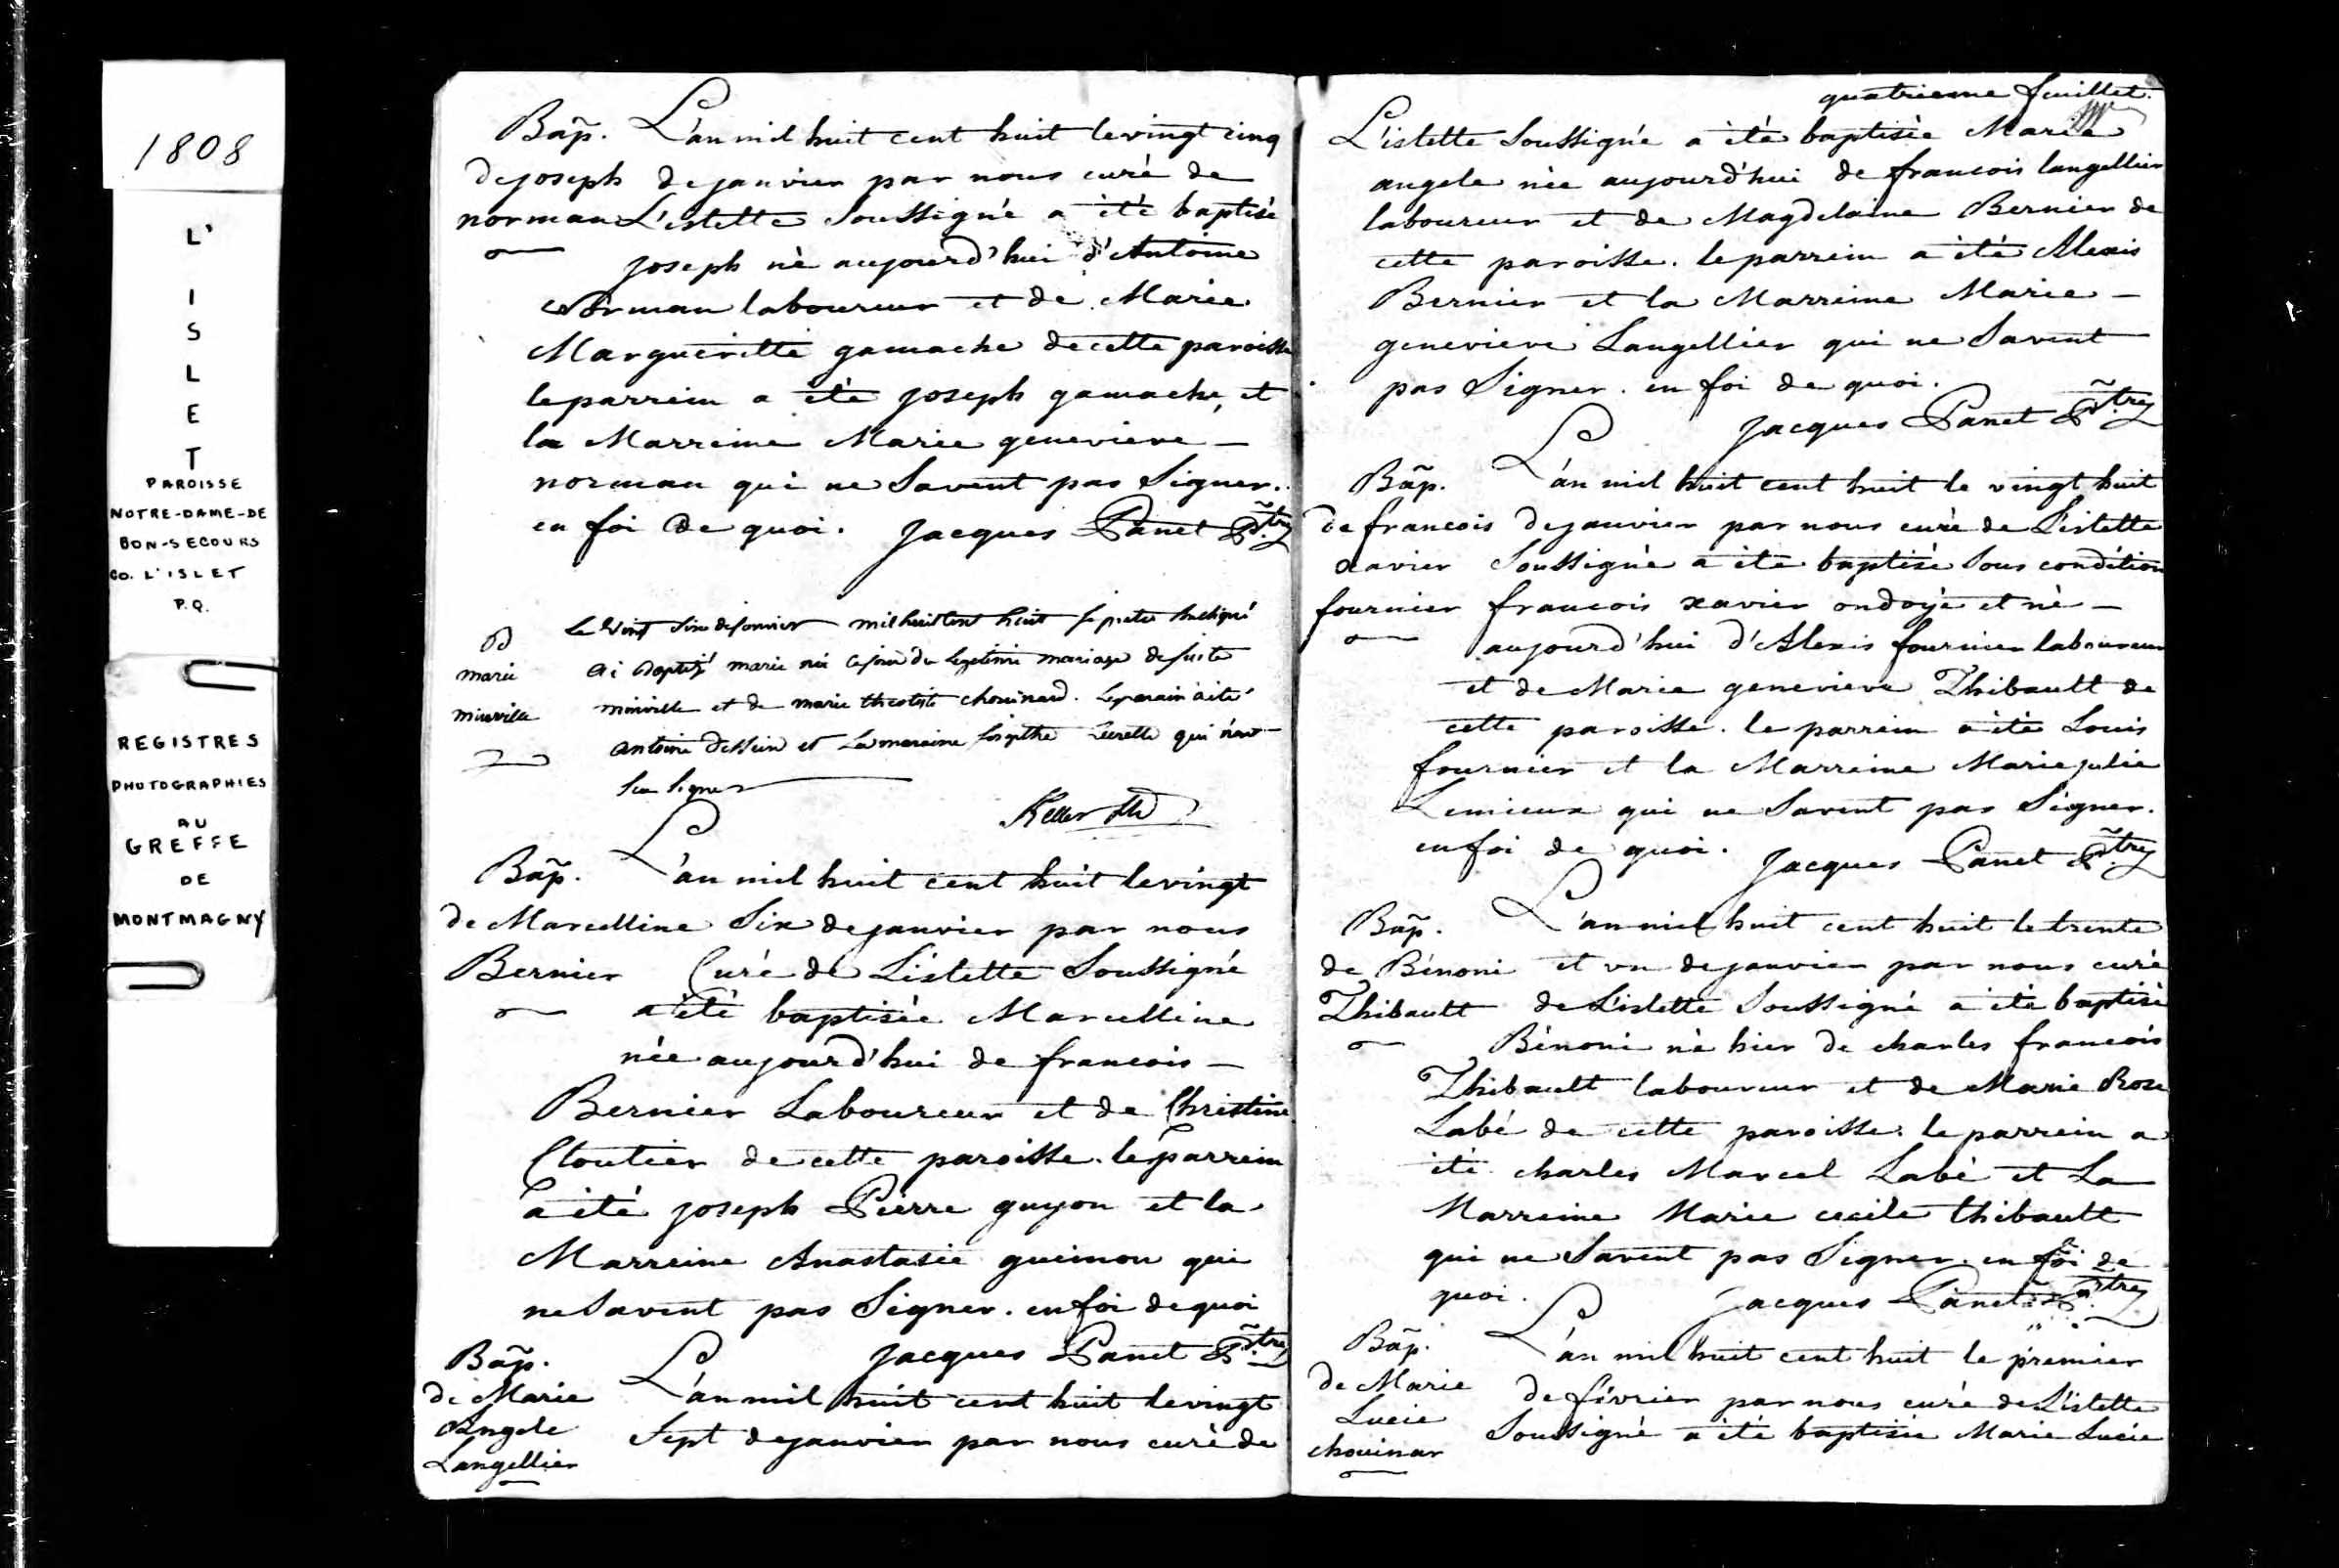 1808
L'
I
S
L
E
T
PAROISSE
NOTRE-DAME-DE
BON-SECOURS
CO. L'ISLET
P.Q.
REGISTRES
PHOTOGRAPHIES
AU
GREFFE
DE
MONTMAGNY
Bap̃. L'an mil huit cent huit le vingt cinq
de joseph de janvier par nous curé de
norman L'islette Soussigné a été baptisé
joseph né aujourd'hui d'Antoine
Norman laboureur et de Marie
Margueritte gamache de cette paroisse
le parrein a été joseph gamache, et
la Marreine Marie genevieve
norman qui ne Savent pas Signer.
en foi de quoi. Jacques Panet Ptre
B
marie
minville
Le vingt six de janvier mil huit cent huit je pretre Soussigné
ai baptisé marie née ce jour du legitime mariage de
minville et de marie theotiste chouinard. Le parain a été
antoine et La maraine qui n'ont
Su Signer
Bap̃. L'an mil huit cent huit le vingt
de Marcelline Six de janvier par nous
Bernier Curé de L'islette Soussigné
a été baptisée Marcelline
née aujourd'hui de francois
Bernier Laboureur et de Christine
Cloutier de cette paroisse. le parrein
a été joseph Pierre guyon et la
Marreine Anastasie guimon qui
ne Savent pas Signer. en foi de quoi
Jacques Panet Ptre
Bap̃.
de Marie L'an mil huit cent huit le vingt
Angele Sept de janvier par nous curé de
Langellier
quatrieme feuillet.
L'islette Soussigné a été baptisée Marie
angele née aujourd'hui de francois langellier
laboureur et de Magdelaine Bernier de
cette paroisse. le parrein a été Alexis
Bernier et la Marreine Marie
genevieve Langellier qui ne Savent
pas Signer. en foi de quoi.
Jacques Panet Ptre
Bap̃. L'an mil huit cent huit le vingt huit
de francois de janvier par nous curé de L'islette
xavier Soussigné a été baptisé Sous condition
fournier francois xavier ondoyé et né
aujourd'hui d'Alexis fournier laboureur
et de Marie genevieve Thibault de
cette paroisse. le parrein a été Louis
fournier et la Marreine Marie julie
Lemieux qui ne Savent pas Signer.
en foi de quoi. Jacques Panet Ptre
Bap̃. L'an mil huit cent huit le trente
de Bénoni et un de janvier par nous curé
Thibault de L'islette Soussigné a été baptisé
Bénoni né hier de charles francois
Thibault laboureur et de Marie Rose
Labé de cette paroisse. le parrein a
été charles Marcel Labé et La
Marreine Marie cecile thibault
qui ne Savent pas Signer. en foi de
quoi. Jacques Panet Ptre
Bap̃. L'an mil huit cent huit le premier
de Marie de février par nous curé de L'islette
Lucie Soussigné a été baptisée Marie Lucie
chouinar